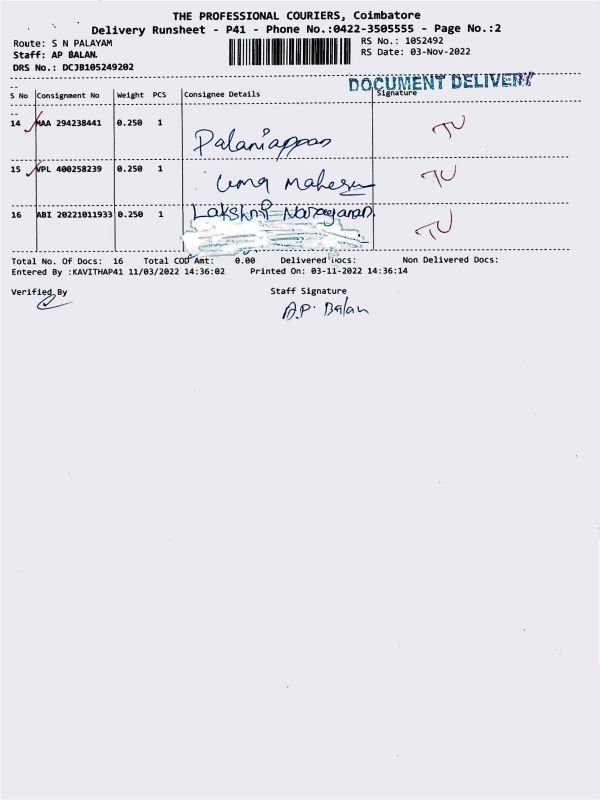 THE PROFESSIONAL COURIERS, Coimbatore
Delivery Runsheet - P41 - Phone No.:0422-3505555 - Page No.:2
Route: S N PALAYAM
RS No.: 1052492
Staff: AP BALAN.
RS Date: 03-Nov-2022
DRS No.: DCJB105249202
DOCUMENT DELIVERY
S No Consignment No Weight PCS Consignee Details Signature
14 MAA 294238441 0.250 1 Palaniappan TU
15 VPL 400258239 0.250 1 Uma Mahesw TU
16 ABI 20221011933 0.250 1 Lakshmi Narayanan. TU
Total No. Of Docs: 16 Total COD Amt: 0.00 Delivered Docs: Non Delivered Docs:
Entered By :KAVITHAP41 11/03/2022 14:36:02 Printed On: 03-11-2022 14:36:14
Verified By Staff Signature
A.P. Balan